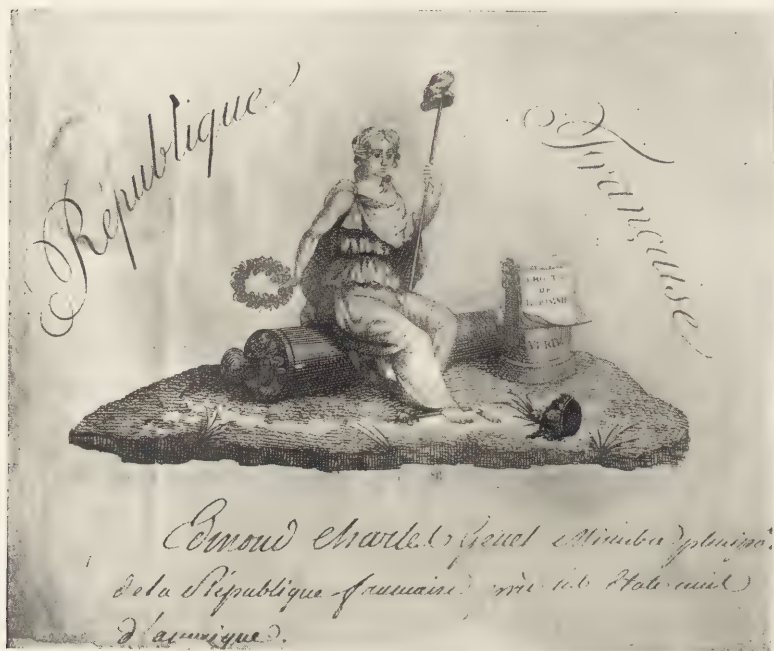 République Française
DROITS
DE
L'HOMME
VERTU
Edmond Charles Genet Ministre plénipo.
de la République française près les états unis
d'amérique.